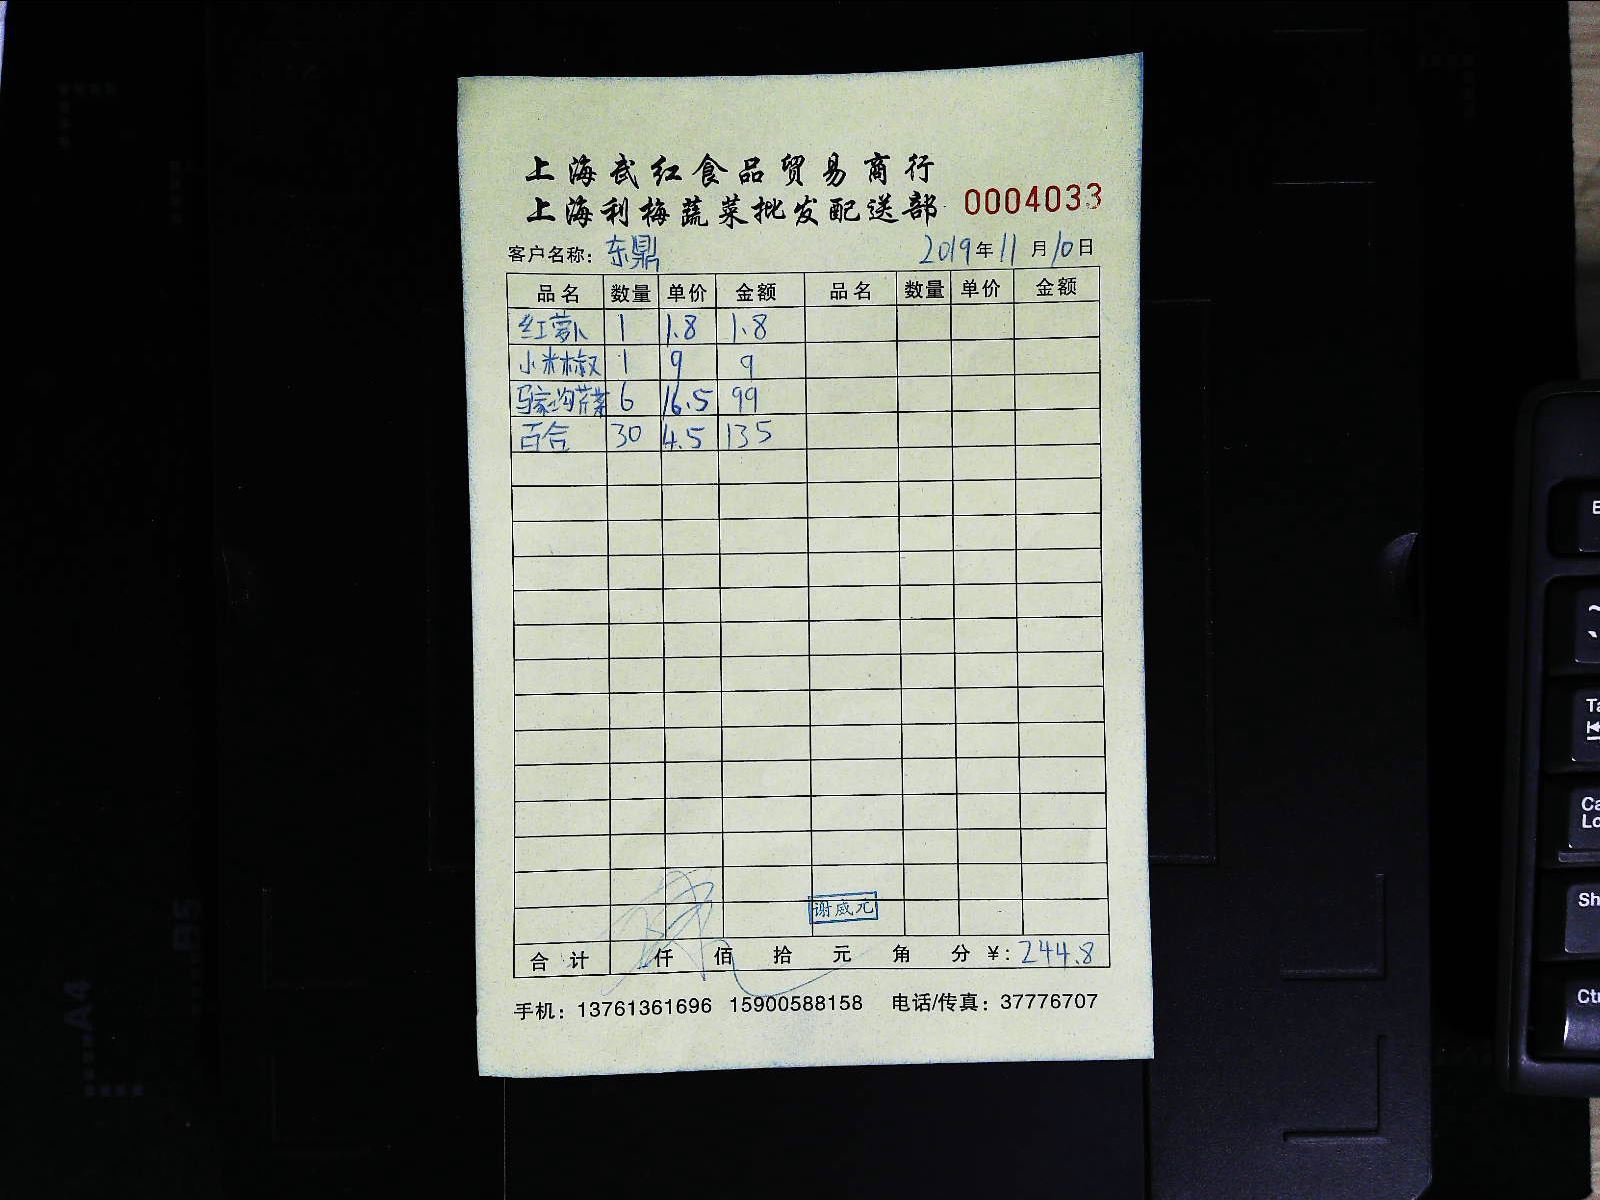 上海武红食品贸易商行
上海利梅蔬菜批发配送部 0004033
客户名称: 东鼎 2019年11月10日
品名 数量 单价 金额 品名 数量 单价 金额
红萝卜 1 1.8 1.8
小米椒 1 9 9
马家沟芹菜 6 16.5 99
百合 30 4.5 135
谢威元
合计 仟 佰 拾 元 角 分 ¥: 244.8
手机: 13761361696 15900588158 电话/传真: 37776707
A4
B5